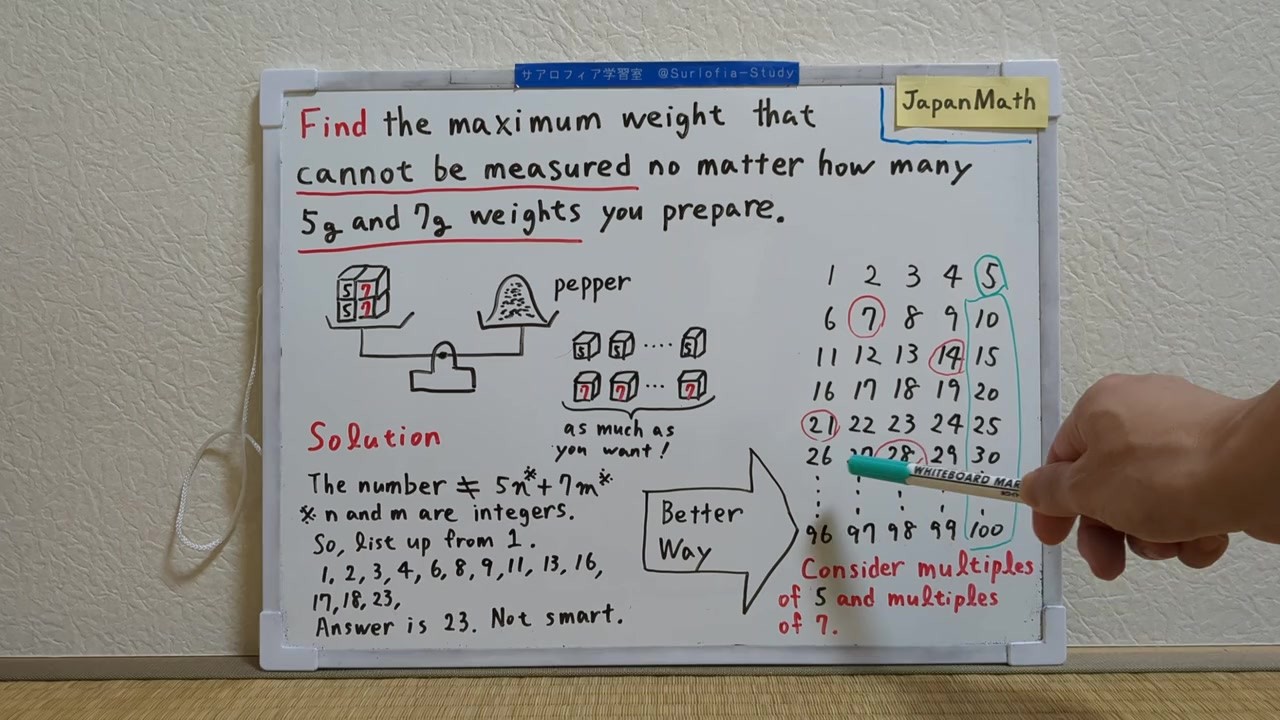 サアロフィア学習室 @Surlofia-Study
JapanMath
Find the maximum weight that
cannot be measured no matter how many
5g and 7g weights you prepare.
5 7
5 7
pepper
5 5 ・・・・ 5
7 7 ・・・ 7
as much as
you want!
Solution
The number ≠ 5n※+7m※
※ n and m are integers.
So, list up from 1.
1, 2, 3, 4, 6, 8, 9, 11, 13, 16,
17, 18, 23,
Answer is 23. Not smart.
Better
Way
1 2 3 4 5
6 7 8 9 10
11 12 13 14 15
16 17 18 19 20
21 22 23 24 25
26 28 29 30
96 97 98 99 100
Consider multiples
of 5 and multiples
of 7.
WHITEBOARD MAR